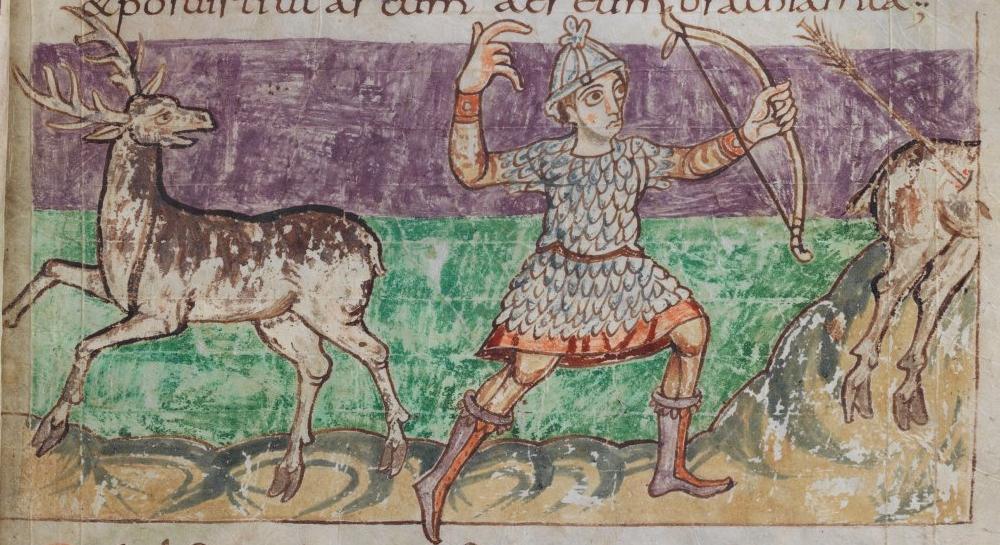 & posuisti ut arcum aereum brachia mea